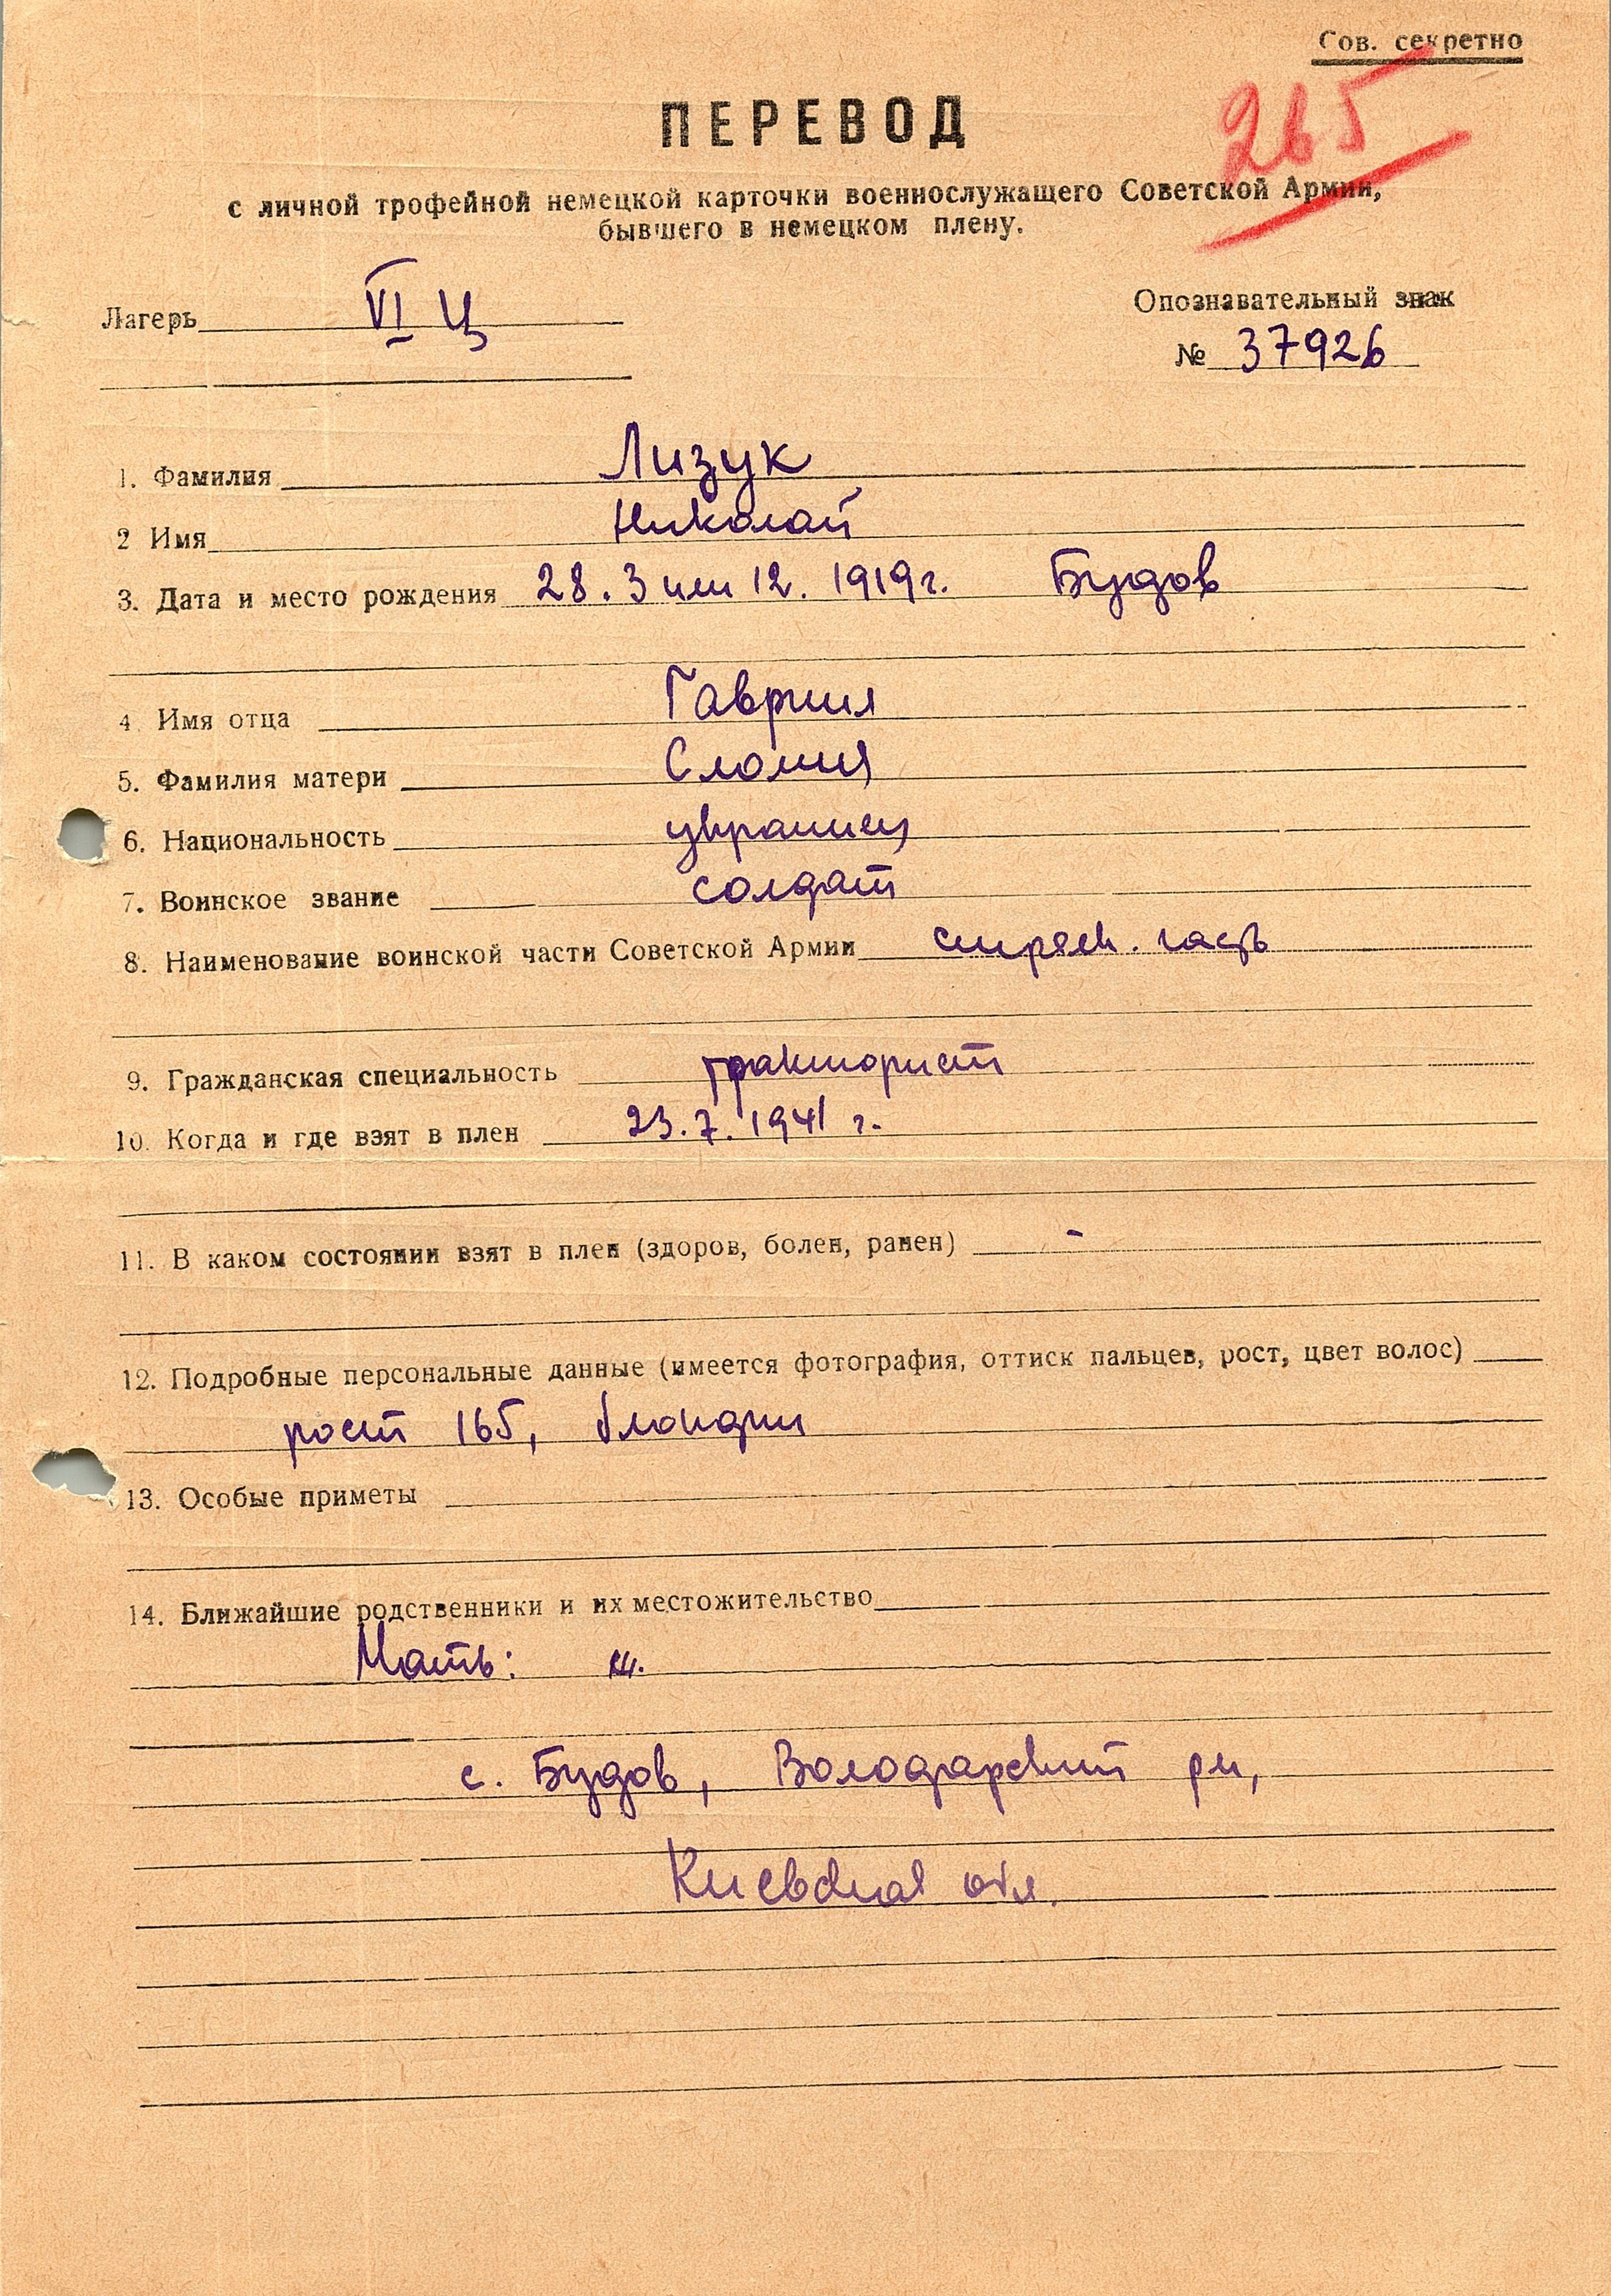 Сов. секретно
265
ПЕРЕВОД
с личной трофейной немецкой карточки военнослужащего Советской Армии,
бывшего в немецком плену.
Лагерь VI Ц
Опознавательный знак
№ 37926
1. Фамилия Лизук
2 Имя Николай
3. Дата и место рождения 28. 3 или 12. 1919 г. Будов
4 Имя отца Гавриил
5. Фамилия матери
6. Национальность украинец
7. Воинское звание солдат
8. Наименование воинской части Советской Армии стрелк. часть
9. Гражданская специальность тракторист
10. Когда и где взят в плен 23. 7. 1941 г.
11. В каком состоянии взят в плен (здоров, болен, ранен) -
12. Подробные персональные данные (имеется фотография, оттиск пальцев, рост, цвет волос)
рост 165, блондин
13. Особые приметы
14. Ближайшие родственники и их местожительство
Мать:
с. Будов, Володарский рн,
Киевская обл.